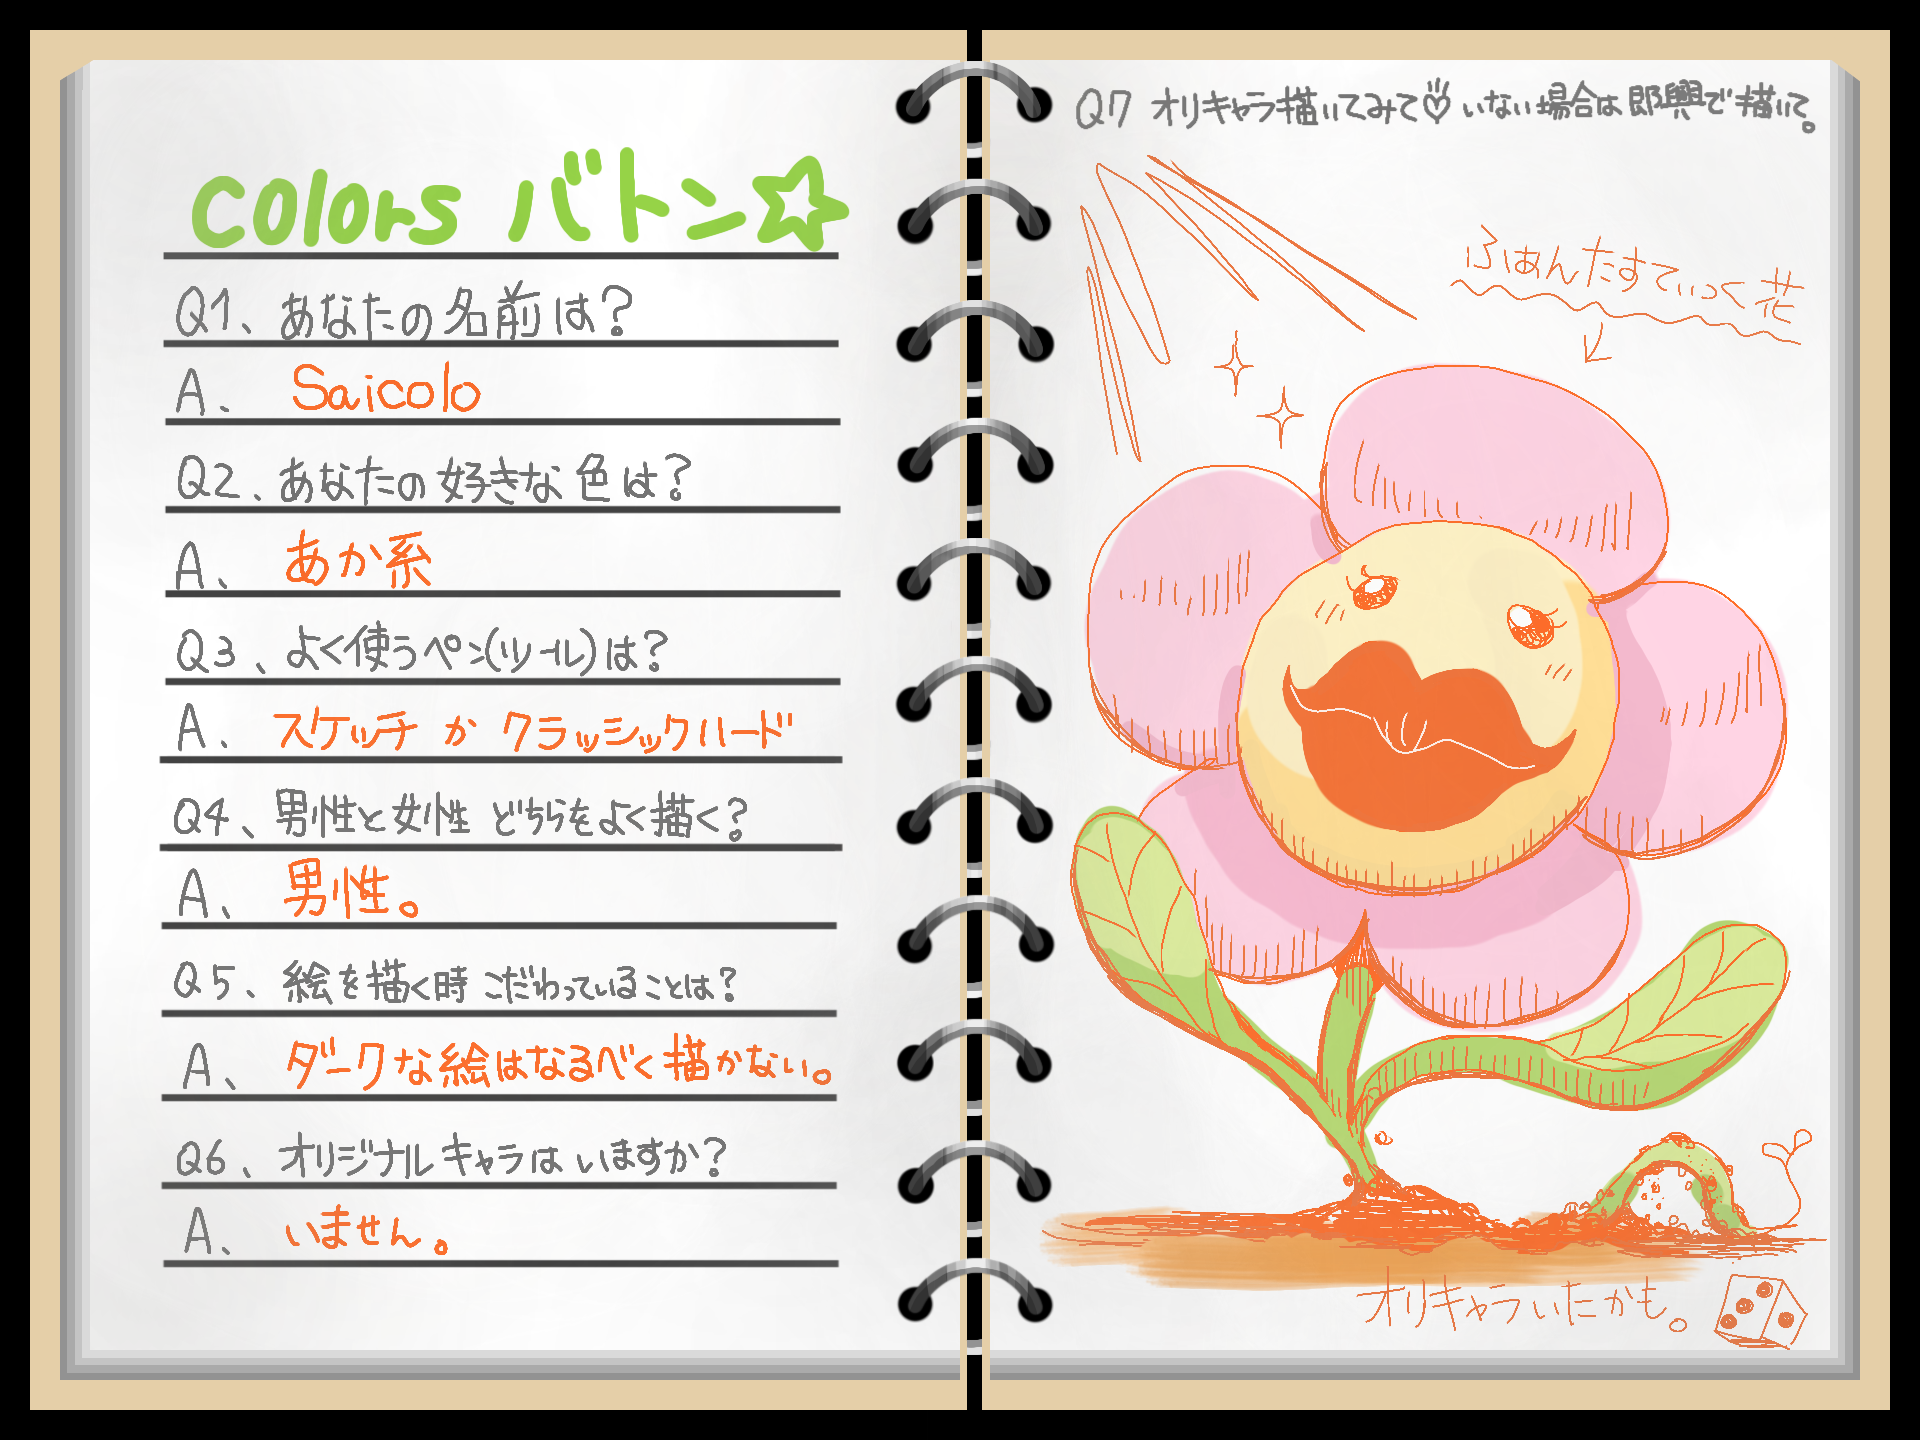 colors バトン☆
Q1、あなたの名前は?
A、 Saicolo
Q2、あなたの好きな色は?
A、 あか系
Q3、よく使うペン(ツール)は?
A、 スケッチ か クラッシックハード
Q4、男性と女性 どちらをよく描く?
A、 男性。
Q5、絵を描く時 こだわっていることは?
A、 ダークな絵はなるべく描かない。
Q6、オリジナルキャラは いますか?
A、 いません。
Q7 オリキャラ描いてみて♡ いない場合は即興で描いて。
ふぁんたすてぃっく花
オリキャラいたかも。